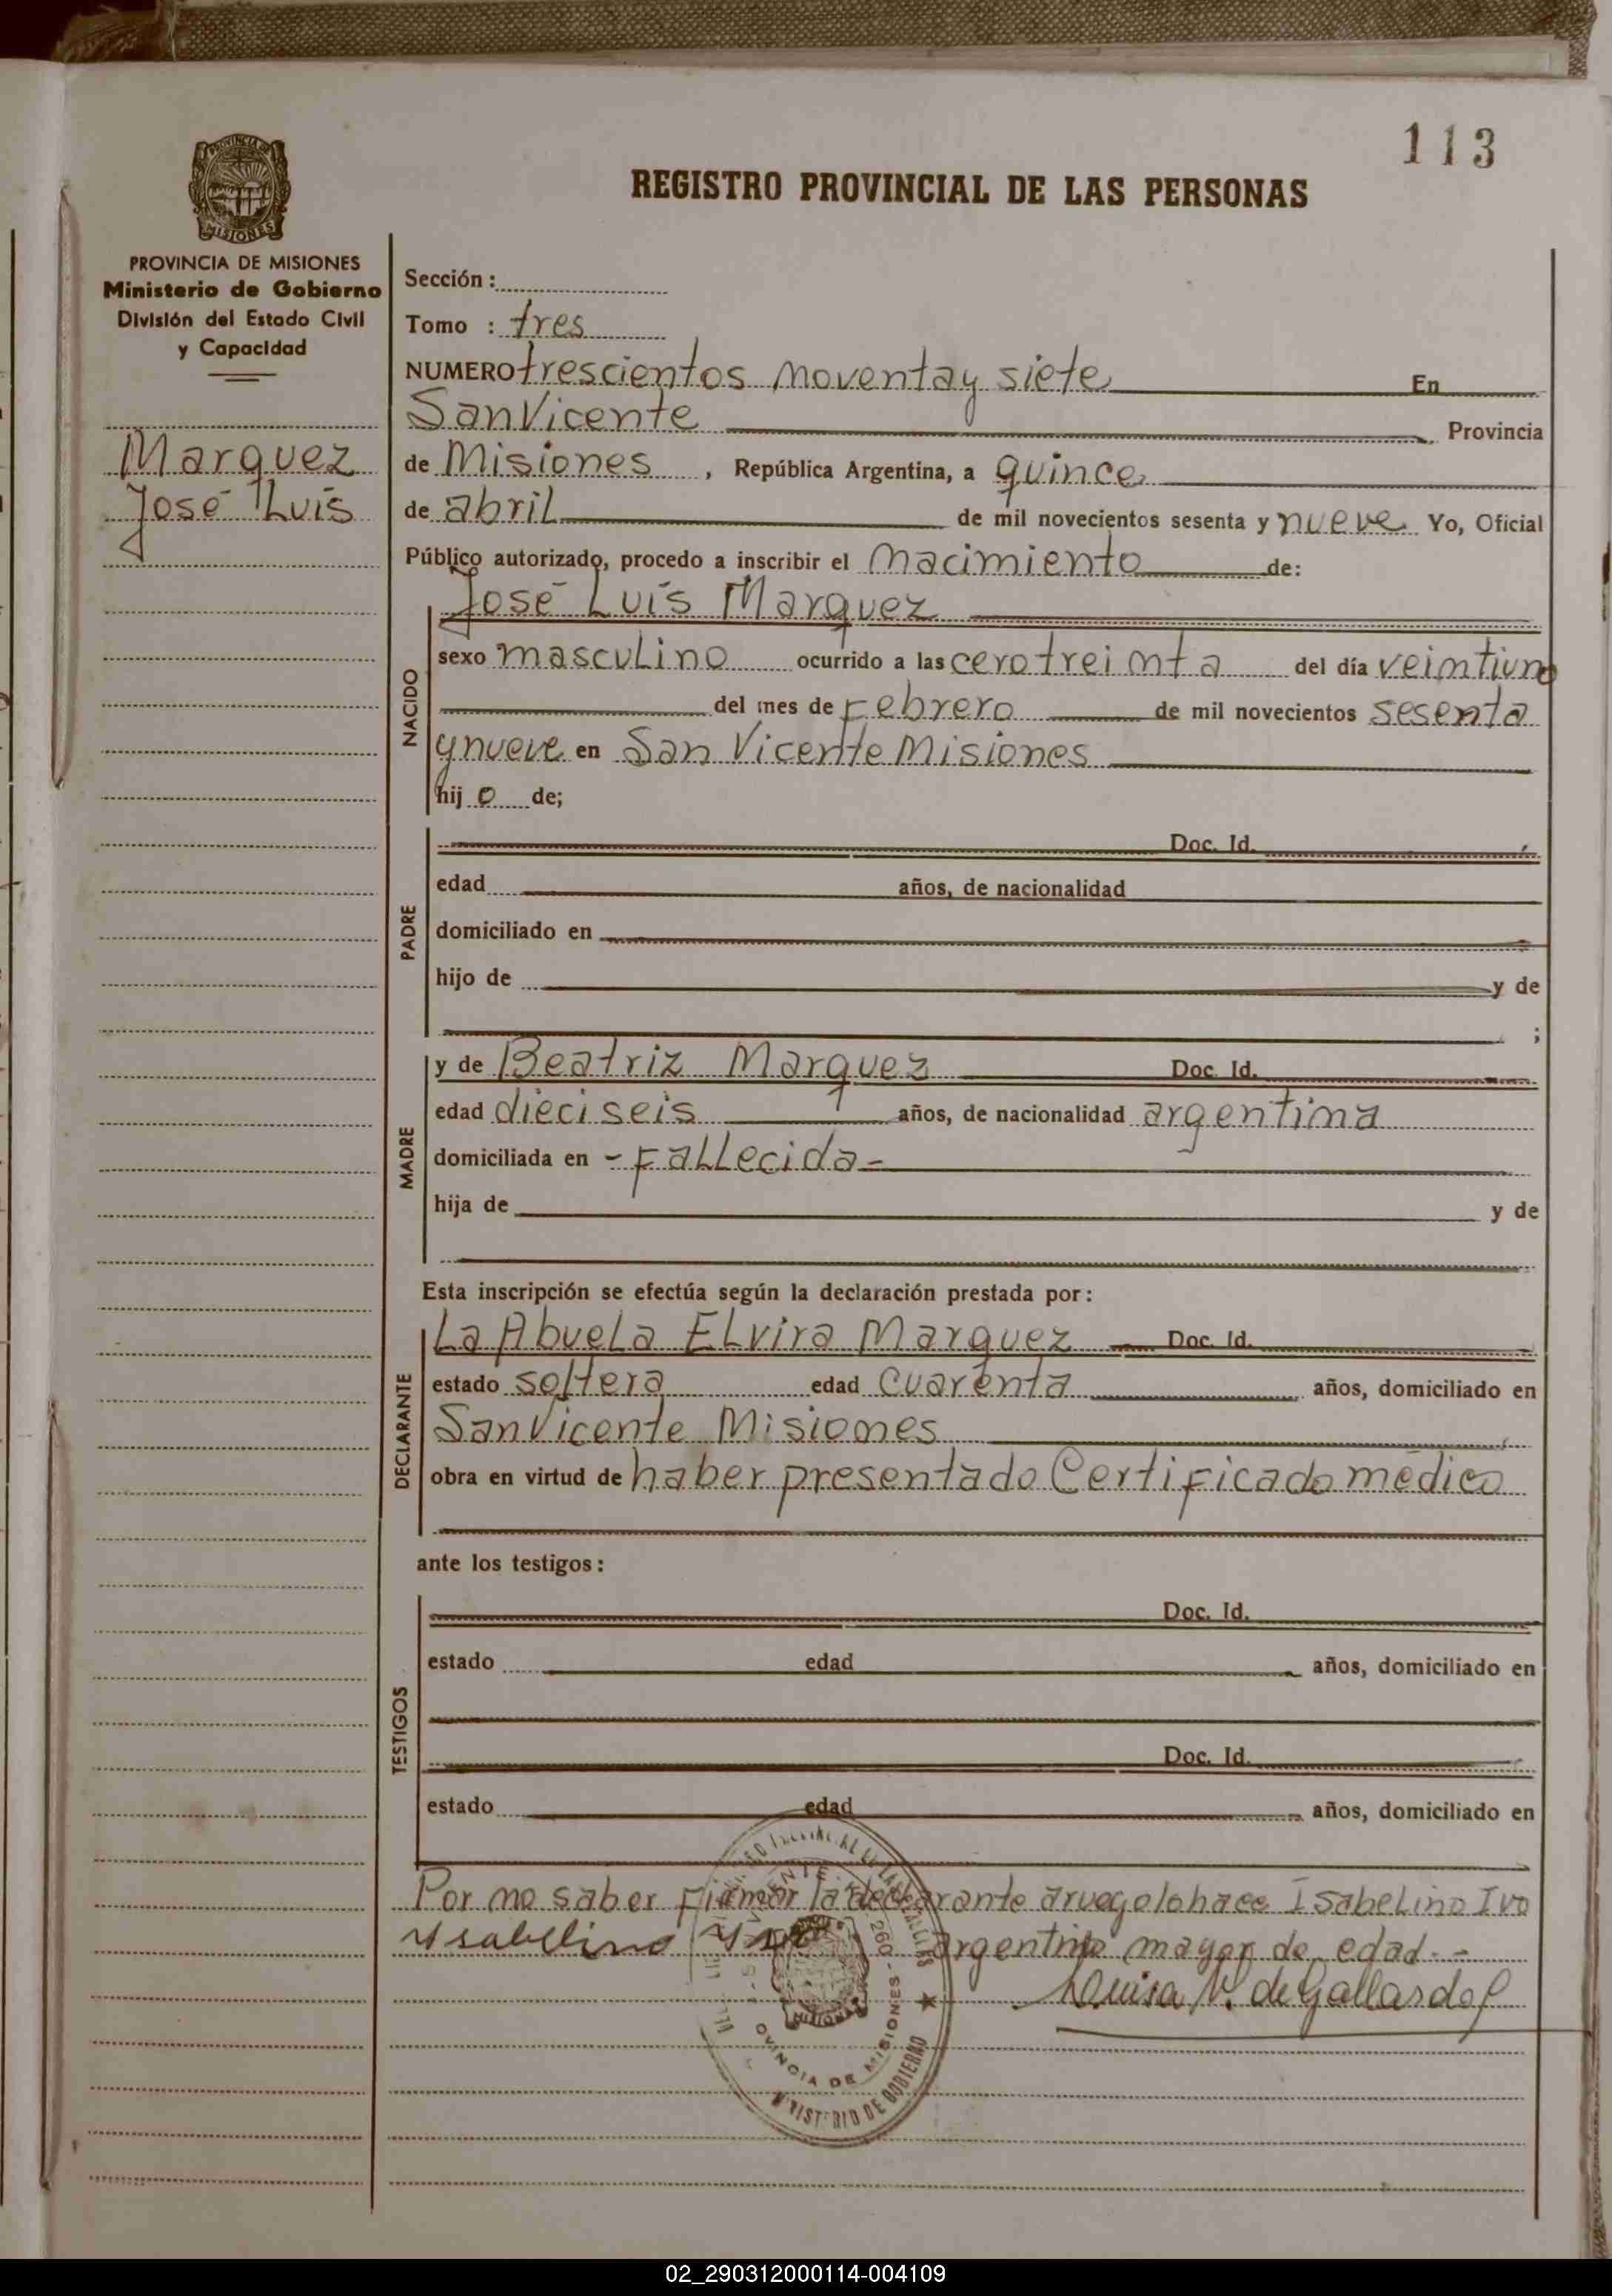 113
REGISTRO PROVINCIAL DE LAS PERSONAS
PROVINCIA DE
MISIONES
PROVINCIA DE MISIONES
Ministerio de Gobierno
División del Estado Civil
y Capacidad
Marquez
José Luis
Sección :
Tomo : tres
NUMERO trescientos noventa y siete En
San Vicente Provincia
de Misiones , República Argentina, a quince
de abril de mil novecientos sesenta y nueve Yo, Oficial
Público autorizado, procedo a inscribir el nacimiento de:
NACIDO
José Luis Marquez
sexo masculino ocurrido a las cero treinta del día veintiuno
del mes de Febrero de mil novecientos sesenta
y nueve en San Vicente Misiones
hij o de;
PADRE
Doc. Id.
edad años, de nacionalidad
domiciliado en
hijo de y de
;
MADRE
y de Beatriz Marquez Doc. Id.
edad dieciseis años, de nacionalidad argentina
domiciliada en - Fallecida -
hija de y de
Esta inscripción se efectúa según la declaración prestada por:
DECLARANTE
La Abuela Elvira Marquez Doc. Id.
estado soltera edad cuarenta años, domiciliado en
San Vicente Misiones
obra en virtud de haber presentado Certificado médico
ante los testigos:
TESTIGOS
Doc. Id.
estado edad años, domiciliado en
Doc. Id.
estado edad años, domiciliado en
Por no saber Firmar la declarante a ruego lo hace Isabelino Ivo
Ysabelino argentino mayor de edad. -
Luisa V. de Gallardo
PROVINCIA DE MISIONES
MINISTERIO DE GOBIERNO
02_290312000114-004109